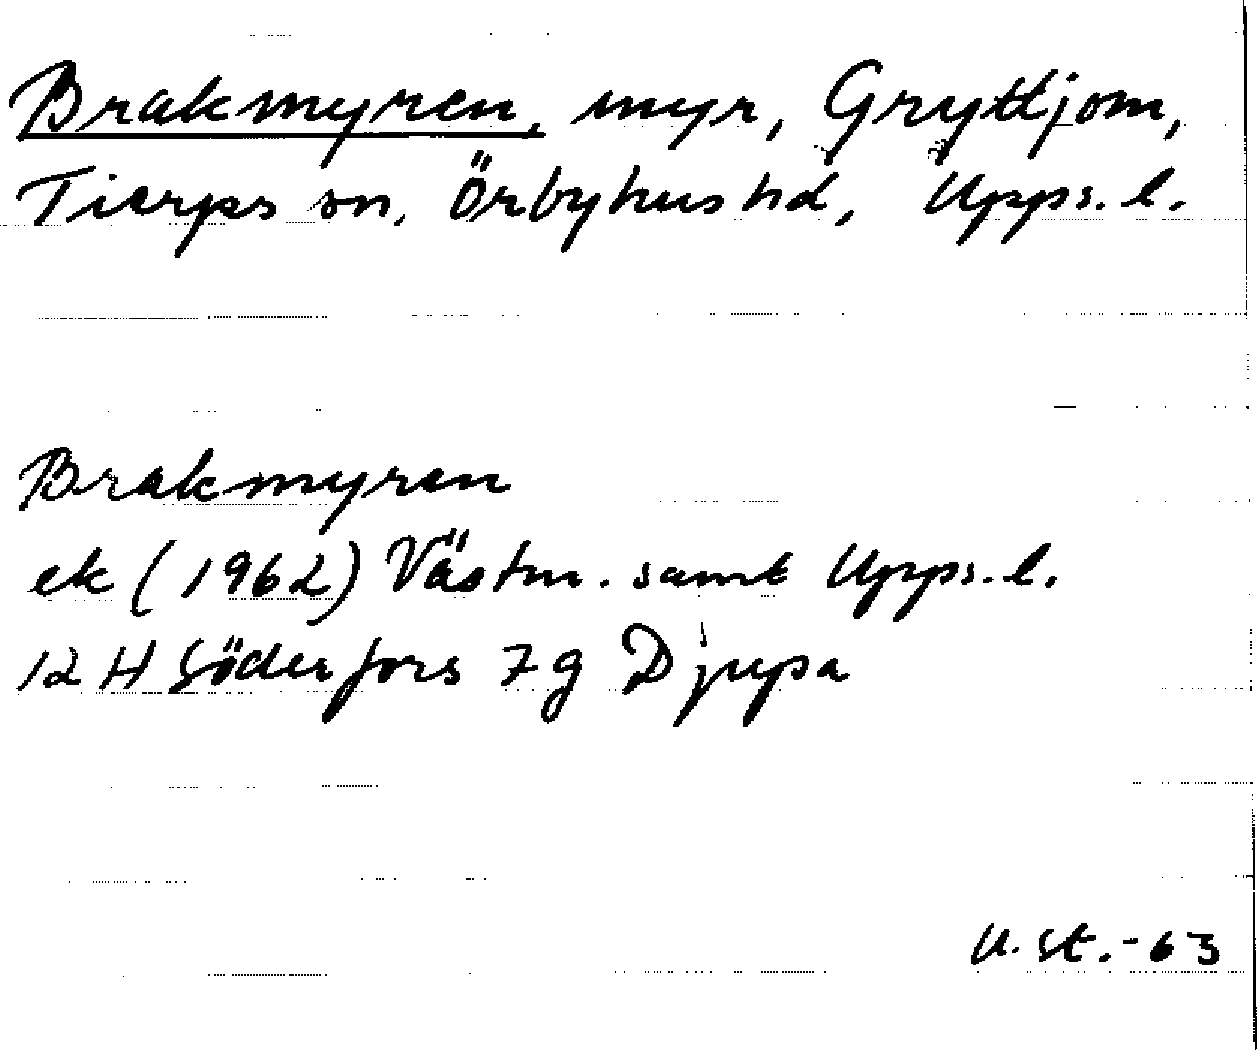 Brakmyren, myr, Gryttjom,
Tierps sn, Örbyhus hd, Upps. l.
Brakmyren
ek (1962) Västm. samt Upps. l.
12 H Söderfors 7 g Djupa
U. St. -63